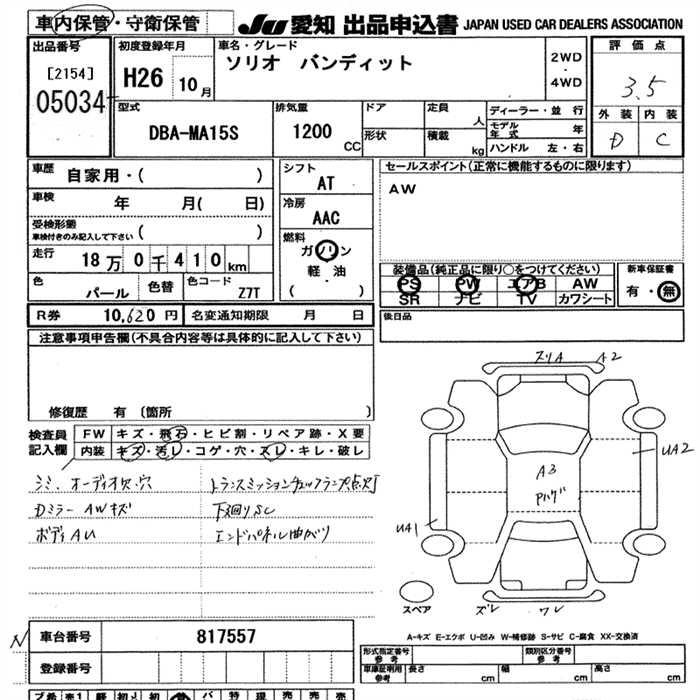 車内保管・守衛保管
JU 愛知 出品申込書 JAPAN USED CAR DEALERS ASSOCIATION
出品番号
[2154]
05034
初度登録年月
H26 10月
車名・グレード
ソリオ バンディット
2WD
・
4WD
評価点
3.5
外装 内装
D C
型式
DBA-MA15S
排気量
1200
CC
ドア
定員
人
形状
積載
kg
ディーラー・並行
モデル年式 年
ハンドル 左・右
車歴 自家用・( )
車検 年 月( 日)
受検形態
車検付きのみ記入して下さい ( )
走行 18万0千410km
色 パール 色替 色コード Z7T
シフト
AT
冷房
AAC
燃料
ガソリン
軽油
( )
セールスポイント(正常に機能するものに限ります)
AW
装備品(純正品に限り○をつけてください)
PS PW エアB AW
SR ナビ TV カワシート
新車保証書
有・無
R券 10,620円 名変通知期限 月 日
後日品
注意事項申告欄(不具合内容等は具体的に記入して下さい)
修復歴 有〔箇所 〕
検査員記入欄
FW キズ・飛石・ヒビ割・リペア跡・X要
内装 キズ・汚レ・コゲ・穴・スレ・キレ・破レ
シミ、オーディオ欠、穴
Dミラー AWキズ
ボディAU
トランスミッションチェックランプ点灯
下廻りSC
エンドパネル曲がり
スリA A2
UA2
A3
Pハゲ
UA1
スペア
ズレ ワレ
A-キズ E-エクボ U-凹み W-補修跡 S-サビ C-腐食 XX-交換済
車台番号 817557
登録番号
形式指定番号
参考
類別区分番号
参考
車庫証明用
参考
長さ cm 幅 cm 高さ cm